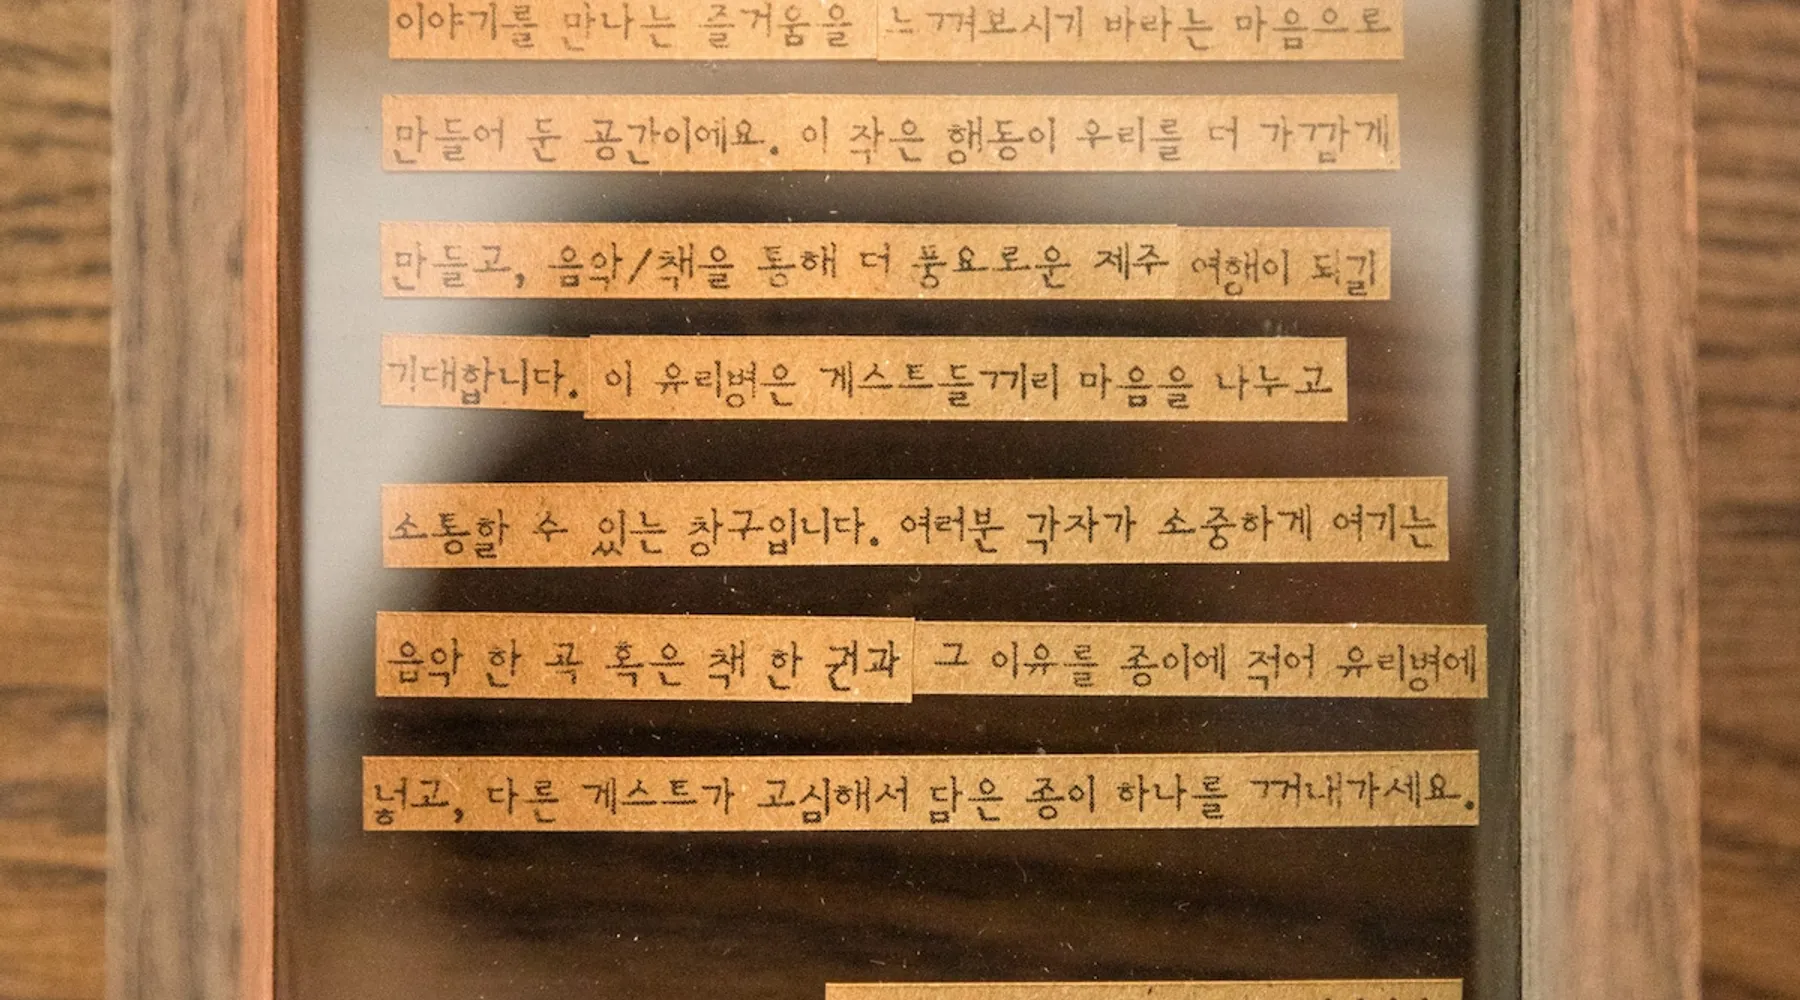 이야기를 만나는 즐거움을 느껴보시기 바라는 마음으로
만들어 둔 공간이에요. 이 작은 행동이 우리를 더 가깝게
만들고, 음악/책을 통해 더 풍요로운 제주 여행이 되길
기대합니다. 이 유리병은 게스트들끼리 마음을 나누고
소통할 수 있는 창구입니다. 여러분 각자가 소중하게 여기는
음악 한 곡 혹은 책 한 권과 그 이유를 종이에 적어 유리병에
넣고, 다른 게스트가 고심해서 담은 종이 하나를 꺼내가세요.